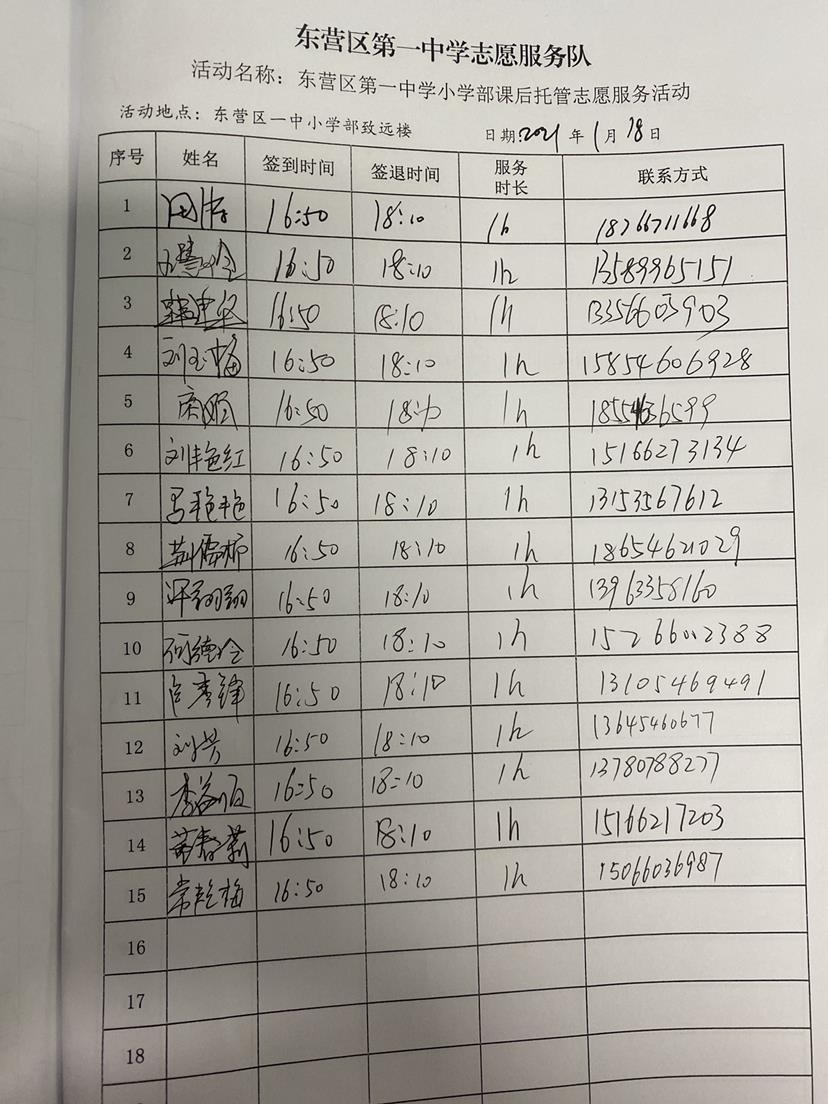 东营区第一中学志愿服务队
活动名称：东营区第一中学小学部课后托管志愿服务活动
活动地点：东营区一中小学部致远楼 日期：2021年1月18日
序号 姓名 签到时间 签退时间 服务时长 联系方式
1 16:50 18:10 1h 18266711668
2 16:50 18:10 1h 13589965151
3 16:50 18:10 1h 13356603903
4 刘玉梅 16:50 18:10 1h 15854606928
5 16:50 18:10 1h
6 刘艳红 16:50 18:10 1h 15166273134
7 马艳艳 16:50 18:10 1h 13153567612
8 16:50 18:10 1h 18654621029
9 许翔翔 16:50 18:10 1h 13963358160
10 何德全 16:50 18:10 1h 15266002388
11 16:50 18:10 1h 13105469491
12 刘芳 16:50 18:10 1h 13645460677
13 16:50 18:10 1h 13780788277
14 黄春莉 16:50 18:10 1h 15166217203
15 常艳梅 16:50 18:10 1h 15066036987
16
17
18